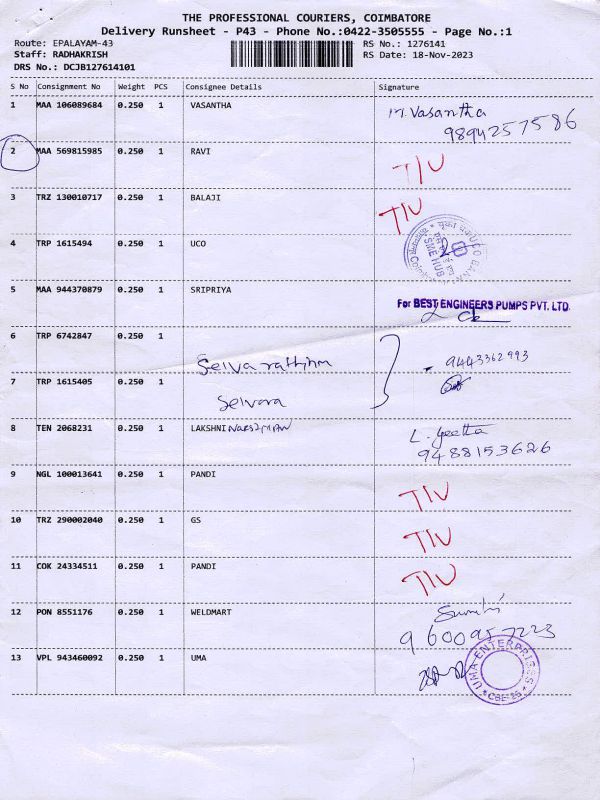 THE PROFESSIONAL COURIERS, COIMBATORE
Delivery Runsheet - P43 - Phone No.:0422-3505555 - Page No.:1
Route: EPALAYAM-43 RS No.: 1276141
Staff: RADHAKRISH RS Date: 18-Nov-2023
DRS No.: DCJB127614101
S No Consignment No Weight PCS Consignee Details Signature
1 MAA 106089684 0.250 1 VASANTHA M. Vasantha
9894257586
2 MAA 569815985 0.250 1 RAVI TIU
3 TRZ 130010717 0.250 1 BALAJI TIU
4 TRP 1615494 0.250 1 UCO UCO BANK SME HUB 20
5 MAA 944370879 0.250 1 SRIPRIYA For BEST ENGINEERS PUMPS PVT. LTD.
6 TRP 6742847 0.250 1 Selva rathinm 9443362993
7 TRP 1615405 0.250 1 Selvara
8 TEN 2068231 0.250 1 LAKSHNI L. Geetha
9488153626
9 NGL 100013641 0.250 1 PANDI TIU
10 TRZ 290002040 0.250 1 GS TIU
11 COK 24334511 0.250 1 PANDI TIU
12 PON 8551176 0.250 1 WELDMART Sumithi
9600957223
13 VPL 943460092 0.250 1 UMA UMA ENTERPRISES CBE-25